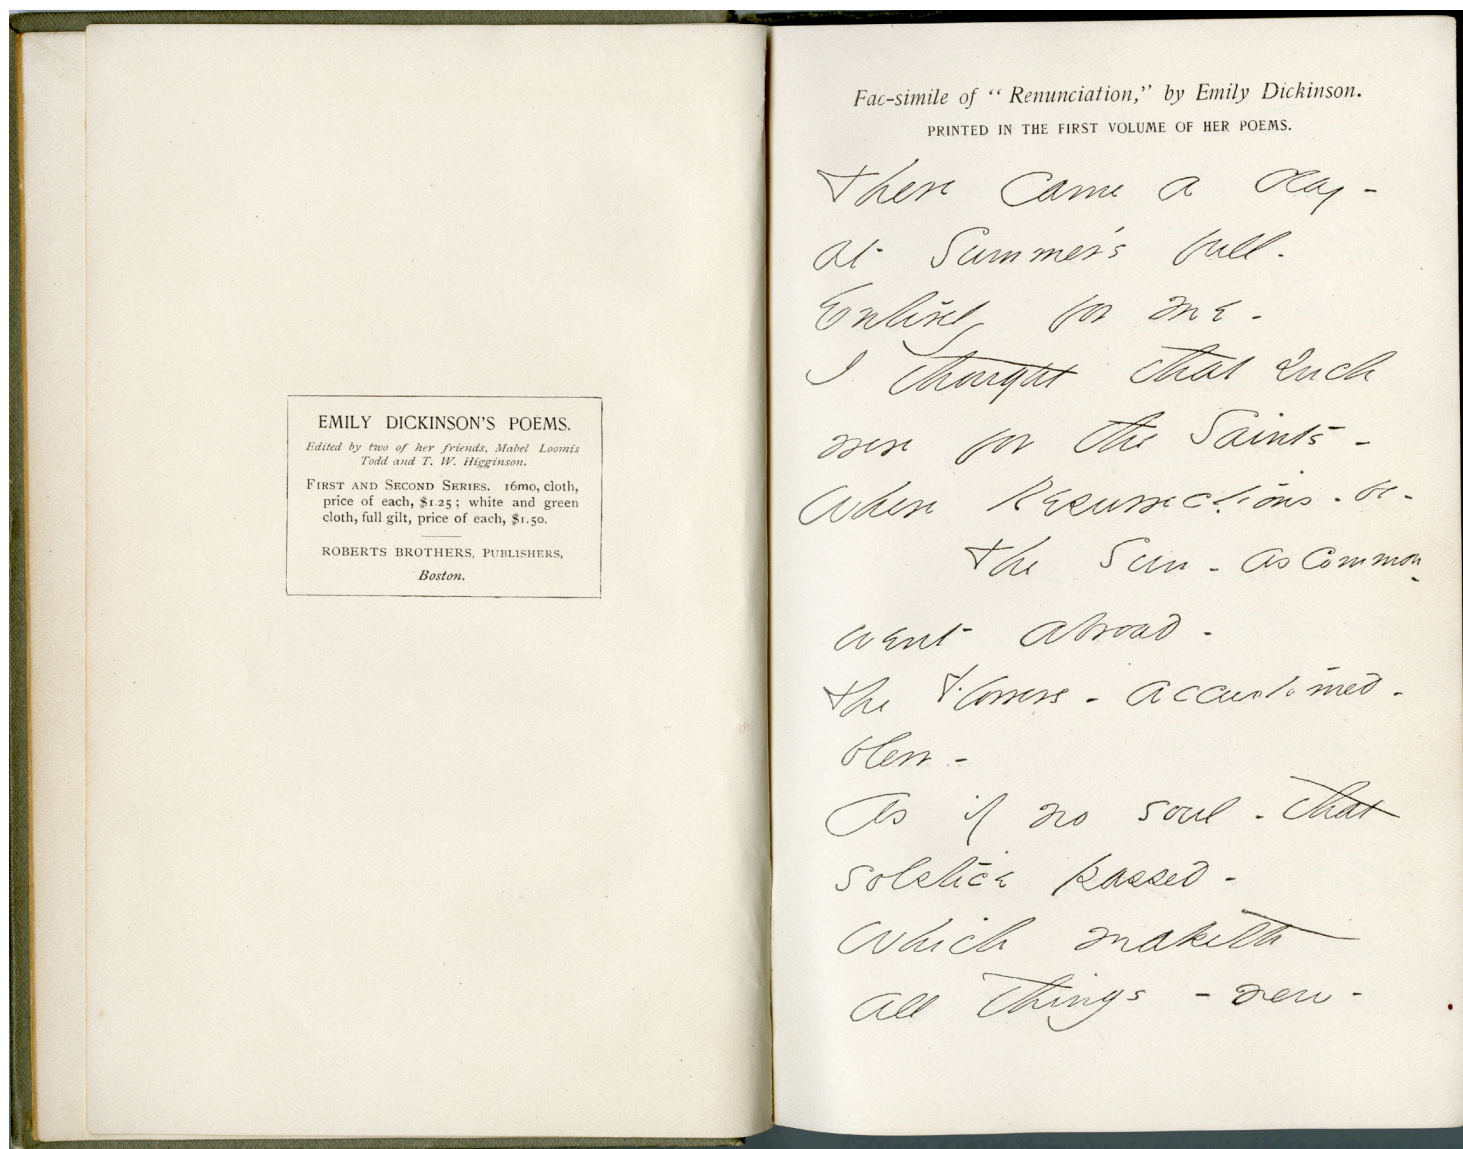 EMILY DICKINSON'S POEMS.
Edited by two of her friends, Mabel Loomis
Todd and T. W. Higginson.
FIRST AND SECOND SERIES. 16mo, cloth,
price of each, $1.25; white and green
cloth, full gilt, price of each, $1.50.
ROBERTS BROTHERS, PUBLISHERS,
Boston.
Fac-simile of "Renunciation," by Emily Dickinson.
PRINTED IN THE FIRST VOLUME OF HER POEMS.
There came a day -
at Summer's full.
Entirely for me -
I thought that such
were for the Saints -
Where Resurrections - be -
The Sun - as common -
went abroad -
The flowers - accustomed -
blew -
As if no soul - that
solstice passed -
Which maketh
all things - new -